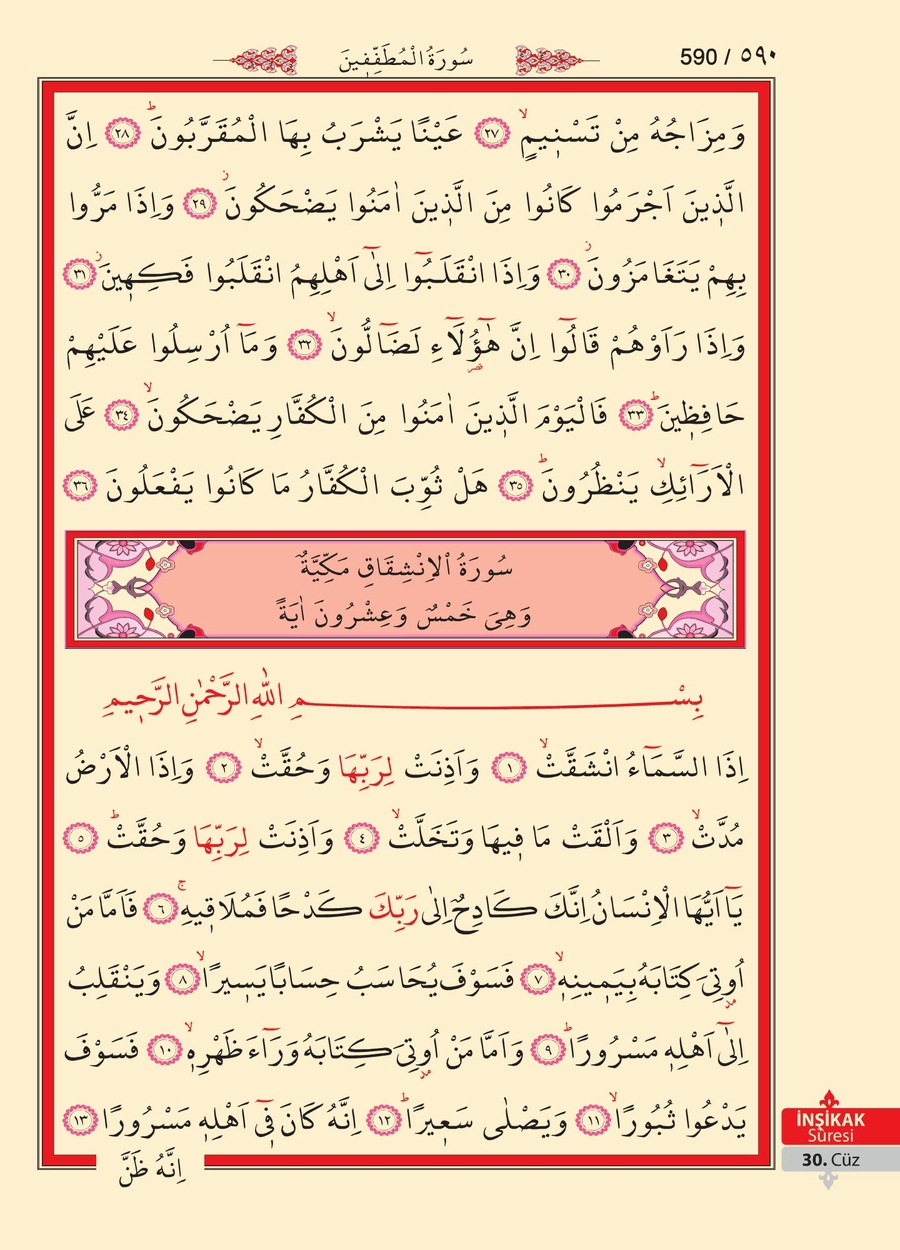 سُورَةُ الْمُطَفِّفٖينَ
590 / ٥٩٠
وَمِزَاجُهُ مِنْ تَسْنٖيمٍۙ ﴿٢٧﴾ عَيْنًا يَشْرَبُ بِهَا الْمُقَرَّبُونَۜ ﴿٢٨﴾ اِنَّ
الَّذٖينَ اَجْرَمُوا كَانُوا مِنَ الَّذٖينَ اٰمَنُوا يَضْحَكُونَؗ ﴿٢٩﴾ وَاِذَا مَرُّوا
بِهِمْ يَتَغَامَزُونَؗ ﴿٣٠﴾ وَاِذَا انْقَلَبُٓوا اِلٰٓى اَهْلِهِمُ انْقَلَبُوا فَكِهٖينَؗ ﴿٣١﴾
وَاِذَا رَاَوْهُمْ قَالُٓوا اِنَّ هٰٓؤُ۬لَٓاءِ لَضَٓالُّونَۙ ﴿٣٢﴾ وَمَٓا اُرْسِلُوا عَلَيْهِمْ
حَافِظٖينَۜ ﴿٣٣﴾ فَالْيَوْمَ الَّذٖينَ اٰمَنُوا مِنَ الْكُفَّارِ يَضْحَكُونَۙ ﴿٣٤﴾ عَلَى
الْاَرَٓائِكِۙ يَنْظُرُونَۜ ﴿٣٥﴾ هَلْ ثُوِّبَ الْكُفَّارُ مَا كَانُوا يَفْعَلُونَ ﴿٣٦﴾
سُورَةُ الْاِنْشِقَاقِ مَكِّيَّةٌ
وَهِىَ خَمْسٌ وَعِشْرُونَ اٰيَةً
بِسْمِ اللّٰهِ الرَّحْمٰنِ الرَّحٖيمِ
اِذَا السَّمَٓاءُ انْشَقَّتْۙ ﴿١﴾ وَاَذِنَتْ لِرَبِّهَا وَحُقَّتْۙ ﴿٢﴾ وَاِذَا الْاَرْضُ
مُدَّتْۙ ﴿٣﴾ وَاَلْقَتْ مَا فٖيهَا وَتَخَلَّتْۙ ﴿٤﴾ وَاَذِنَتْ لِرَبِّهَا وَحُقَّتْۜ ﴿٥﴾
يَٓا اَيُّهَا الْاِنْسَانُ اِنَّكَ كَادِحٌ اِلٰى رَبِّكَ كَدْحًا فَمُلَاقٖيهِۚ ﴿٦﴾ فَاَمَّا مَنْ
اُو۫تِىَ كِتَابَهُ بِيَمٖينِهٖۙ ﴿٧﴾ فَسَوْفَ يُحَاسَبُ حِسَابًا يَسٖيرًاۙ ﴿٨﴾ وَيَنْقَلِبُ
اِلٰٓى اَهْلِهٖ مَسْرُورًاۜ ﴿٩﴾ وَاَمَّا مَنْ اُو۫تِىَ كِتَابَهُ وَرَٓاءَ ظَهْرِهٖۙ ﴿١٠﴾ فَسَوْفَ
يَدْعُوا ثُبُورًاۙ ﴿١١﴾ وَيَصْلٰى سَعٖيرًاۜ ﴿١٢﴾ اِنَّهُ كَانَ فٖٓى اَهْلِهٖ مَسْرُورًا ﴿١٣﴾
اِنَّهُ ظَنَّ
İNŞİKAK
Sûresi
30. Cüz